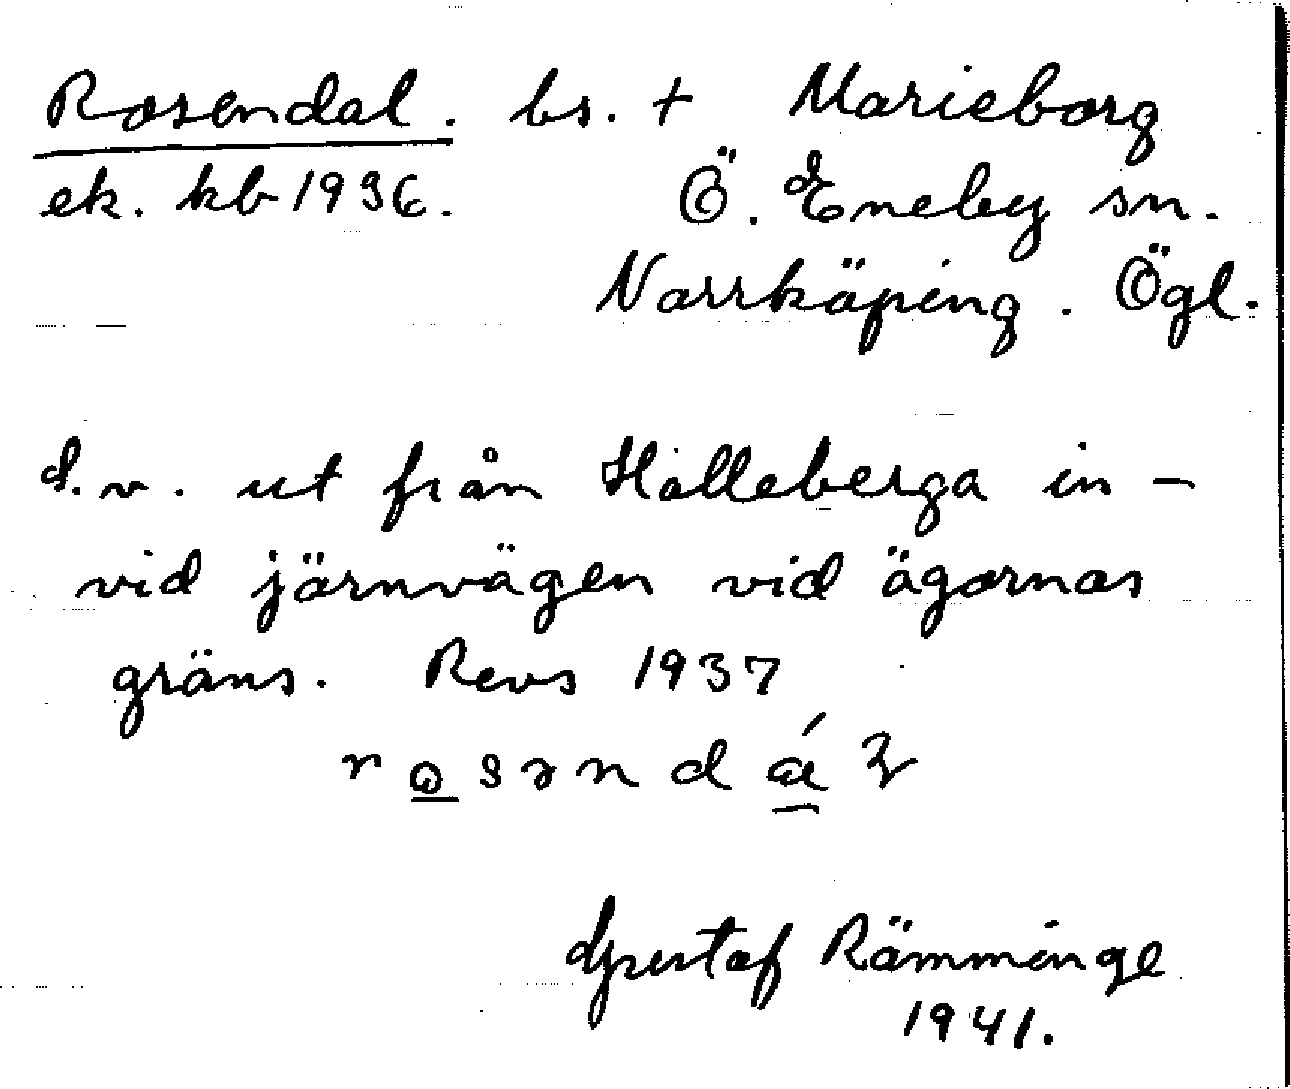 Rosendal. bs. + Marieborg
ek. kb 1936. Ö. Eneby sn.
Norrköping. Ögl.
S.v. ut från Halleberga in-
vid järnvägen vid ägornas
gräns. Revs 1937
Gustaf Rämminge
1941.